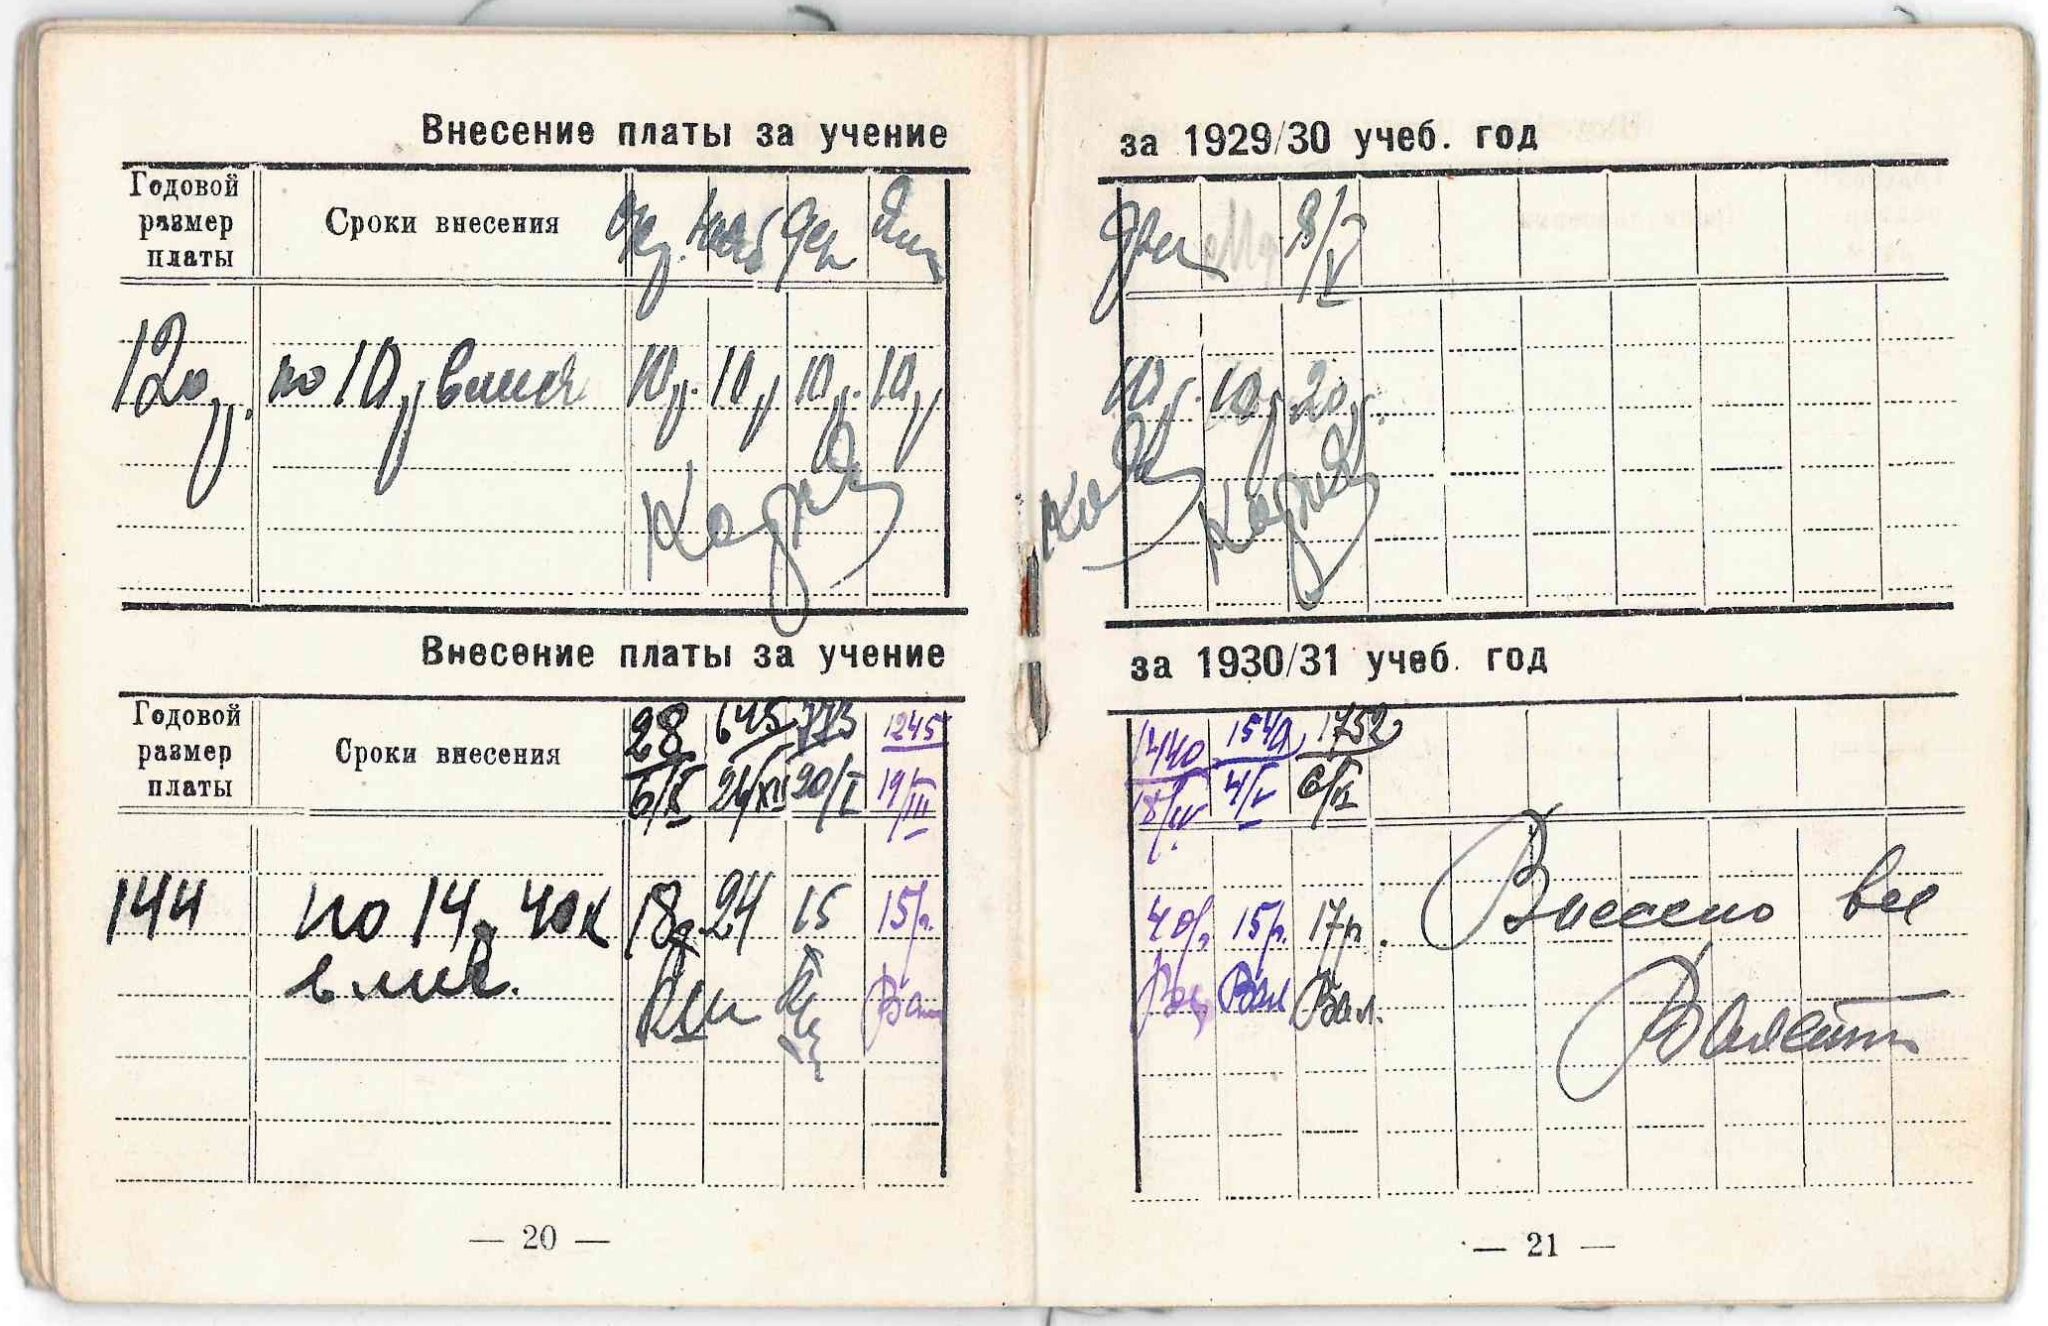 Внесение платы за учение
за 1929/30 учеб. год
Годовой размер платы
Сроки внесения
Янв
8/V
120 р.
по 10 р в месяц
10 р. 10 р 10 р. 10 р
10 р. 10 р. 20 р.
Внесение платы за учение
за 1930/31 учеб. год
Годовой размер платы
Сроки внесения
28 645 773 1245
1440 1540 1752
6/X 24/XII 20/I 19/III
18/IV 4/V 6/VI
144
по 14 р 40 к
в мес.
18р. 24 15 15 р.
40 р 15 р. 17 р.
Вал Вал.
Внесено все
— 20 —
— 21 —